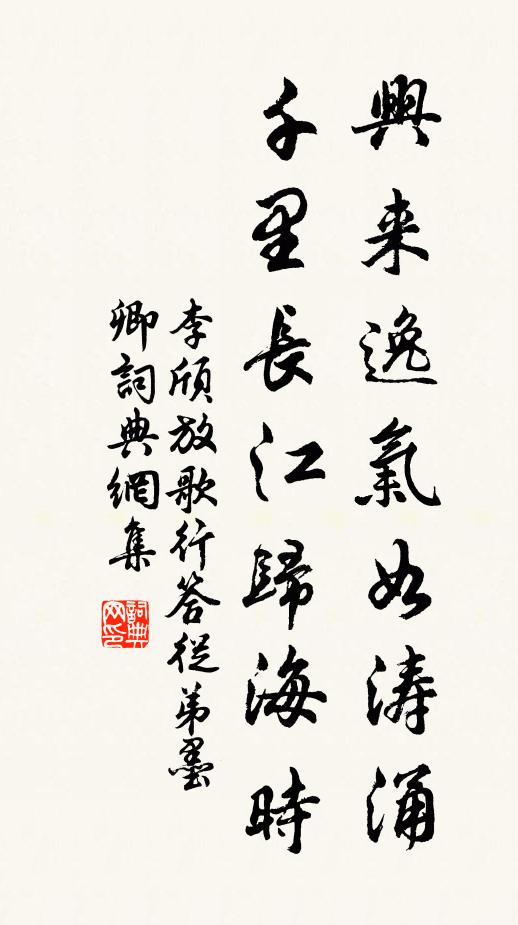 興来逸氣如涛涌
千里長江歸海時
李頎放歌行答從弟墨
卿詞典網集
詞典网印